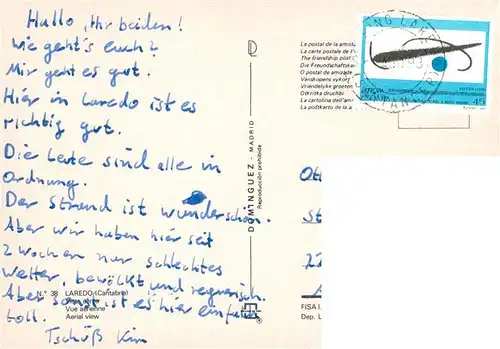 Hallo, Ihr beiden!
Wie geht's euch?
Mir geht es gut.
Hier in Laredo ist es
richtig gut.
Die Leute sind alle in
Ordnung.
Der Strand ist wunderschön.
Aber wir haben hier seit
2 Wochen nur schlechtes
Wetter, bewölkt und regnerisch.
Aber sonst ist es hier einfach
toll.
Tschüß Kim
N.º 38 LAREDO (Cantabria)
Vue aérienne
Aerial view
DOMINGUEZ - MADRID
Reproducción prohibida
La postal de la amist
La carte postale de l'
The friendship post
Die Freundschaftska
O postal de amizade
Vriendelyke groeten
La cartolina dell'am
La poŝtkarto de la a
EUROPA
45
Ott
St
22
FISA I.
Dep. L